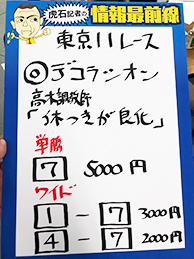 虎石記者の
情報最前線
東京11レース
◎デコラシオン
高木調教師
「体つきが良化」
単勝
7 5000円
ワイド
1 - 7 3000円
4 - 7 2000円